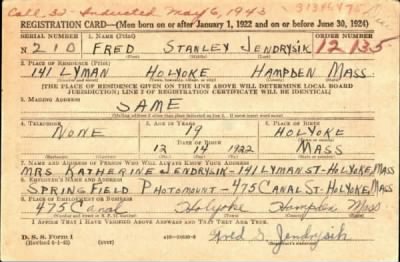 Call 31 - Inducted May 6, 1943
REGISTRATION CARD—(Men born on or after January 1, 1922 and on or before June 30, 1924)
SERIAL NUMBER 1. NAME (Print) ORDER NUMBER
210 FRED STANLEY JENDRYSIK 12,135
2. PLACE OF RESIDENCE (Print)
141 LYMAN HOLYOKE HAMPDEN MASS
[THE PLACE OF RESIDENCE GIVEN ON THE LINE ABOVE WILL DETERMINE LOCAL BOARD
JURISDICTION; LINE 2 OF REGISTRATION CERTIFICATE WILL BE IDENTICAL]
3. MAILING ADDRESS
SAME
4. TELEPHONE 5. AGE IN YEARS 6. PLACE OF BIRTH
NONE 19 HOLYOKE
DATE OF BIRTH
12 14 1922 MASS
7. NAME AND ADDRESS OF PERSON WHO WILL ALWAYS KNOW YOUR ADDRESS
MRS KATHERINE JENDRYSIK-141 LYMAN ST-HOLYOKE, MASS
8. EMPLOYER'S NAME AND ADDRESS
SPRINGFIELD PHOTOMOUNT-475 CANAL ST-HOLYOKE, MASS
9. PLACE OF EMPLOYMENT OR BUSINESS
475 Canal Holyoke Hampden Mass
I AFFIRM THAT I HAVE VERIFIED ABOVE ANSWERS AND THAT THEY ARE TRUE.
D. S. S. Form 1
Fred S. Jendrysik